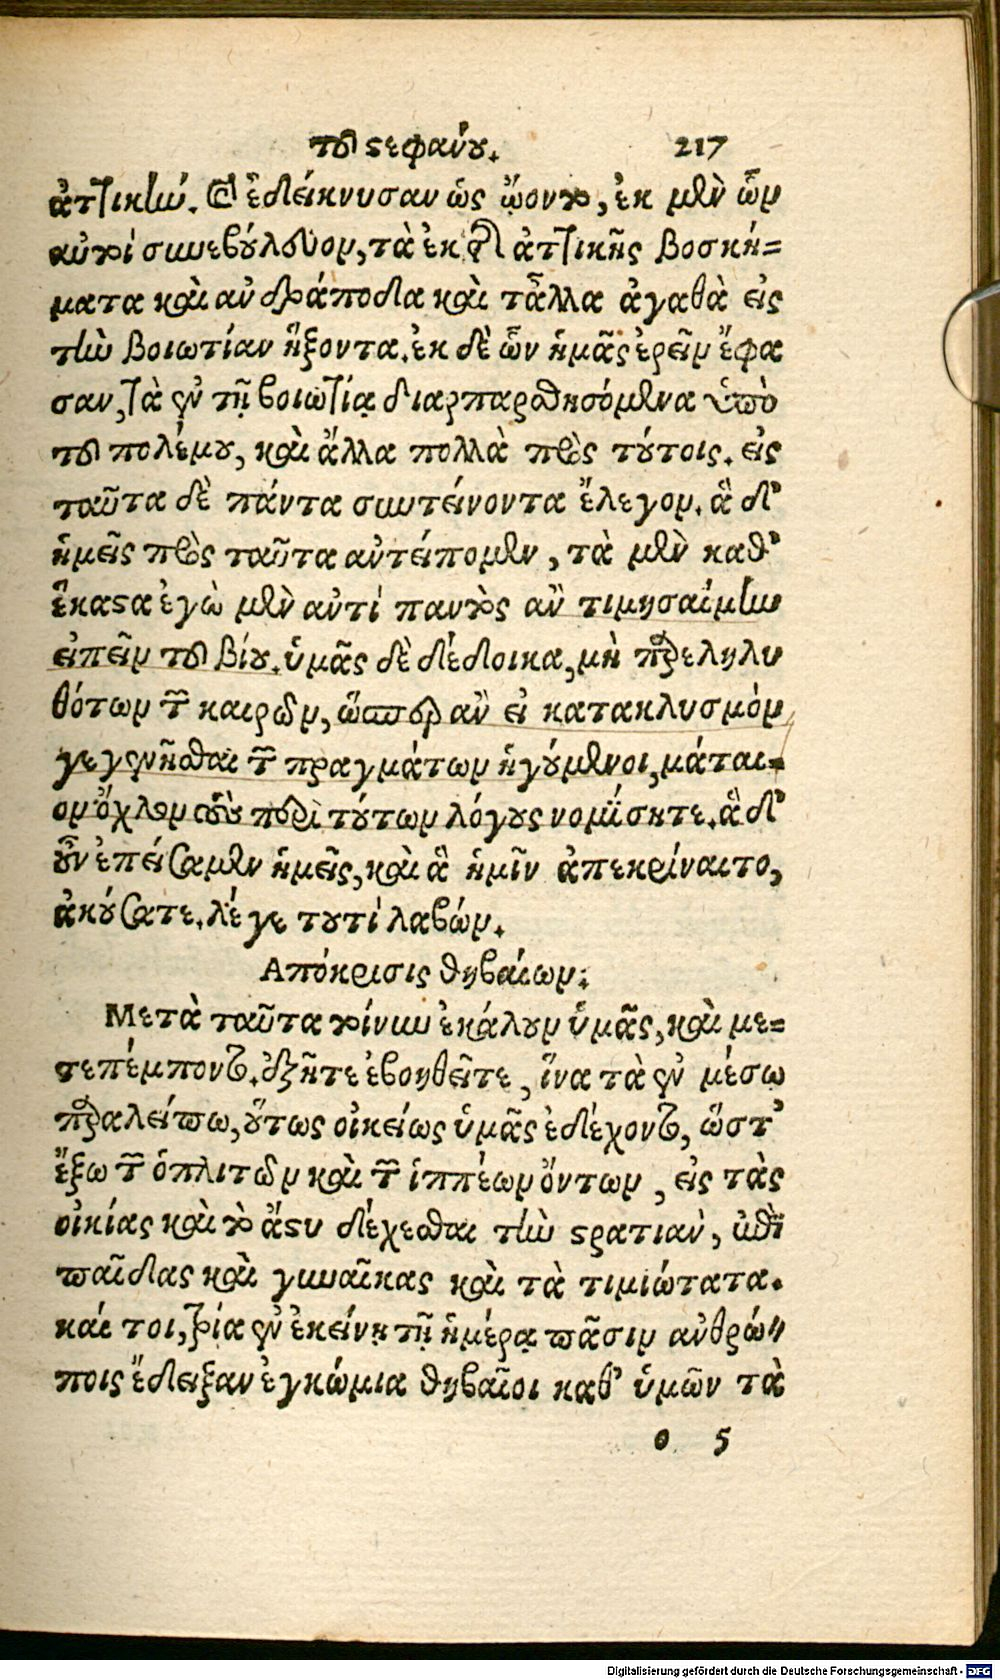 τοῦ ςεφάνου. 217
ἀττικὴν. καὶ ἐδείκνυσαν ὡς ᾤοντο, ἐκ μὲν ὧν
αὐτοὶ συνεβούλευον, τὰ ἐκ τῆς ἀττικῆς βοσκή=
ματα καὶ ἀνδράποδα καὶ τἆλλα ἀγαθὰ εἰς
τὴν βοιωτίαν ἥξοντα. ἐκ δὲ ὧν ἡμᾶς ἐρεῖν ἔφα
σαν, τὰ ἐν τῇ βοιωτίᾳ διαρπασθησόμενα ὑπὸ
τοῦ πολέμου, καὶ ἄλλα πολλὰ πρὸς τούτοις. εἰς
ταῦτα δὲ πάντα συντείνοντα ἔλεγον. ἃ δ'
ἡμεῖς πρὸς ταῦτα ἀντείπομεν, τὰ μὲν καθ'
ἕκαςα ἐγὼ μὲν ἀντὶ παντὸς ἂν τιμησαίμην
εἰπεῖν τοῦ βίου. ὑμᾶς δὲ δέδοικα, μὴ παρεληλυ
θότων τῶν καιρῶν, ὥσπερ ἂν εἰ κατακλυσμὸν
γεγενῆσθαι τῶν πραγμάτων ἡγούμενοι, μάται=
ον ὄχλον τοὺς περὶ τούτων λόγους νομίσητε. ἃ δ'
οὖν ἐπείσαμεν ἡμεῖς, καὶ ἃ ἡμῖν ἀπεκρίναντο,
ἀκούσατε. λέγε τουτὶ λαβών.
Απόκρισις θηβαίων.
Μετὰ ταῦτα τοίνυν ἐκάλουν ὑμᾶς, καὶ με=
τεπέμποντο. ἐξῆτε ἐβοηθεῖτε, ἵνα τὰ ἐν μέσῳ
παραλείπω, οὕτως οἰκείως ὑμᾶς ἐδέχοντο, ὥστ'
ἔξω τῶν ὁπλιτῶν καὶ τῶν ἱππέων ὄντων, εἰς τὰς
οἰκίας καὶ τὸ ἄςυ δέχεσθαι τὴν ςρατιὰν, ἐπὶ
παῖδας καὶ γυναῖκας καὶ τὰ τιμιώτατα.
καί τοι, τρία ἐν ἐκείνῃ τῇ ἡμέρᾳ πᾶσιν ἀνθρώ=
ποις ἔδειξαν ἐγκώμια θηβαῖοι καθ' ὑμῶν τὰ
o 5
Digitalisierung gefördert durch die Deutsche Forschungsgemeinschaft - DFG